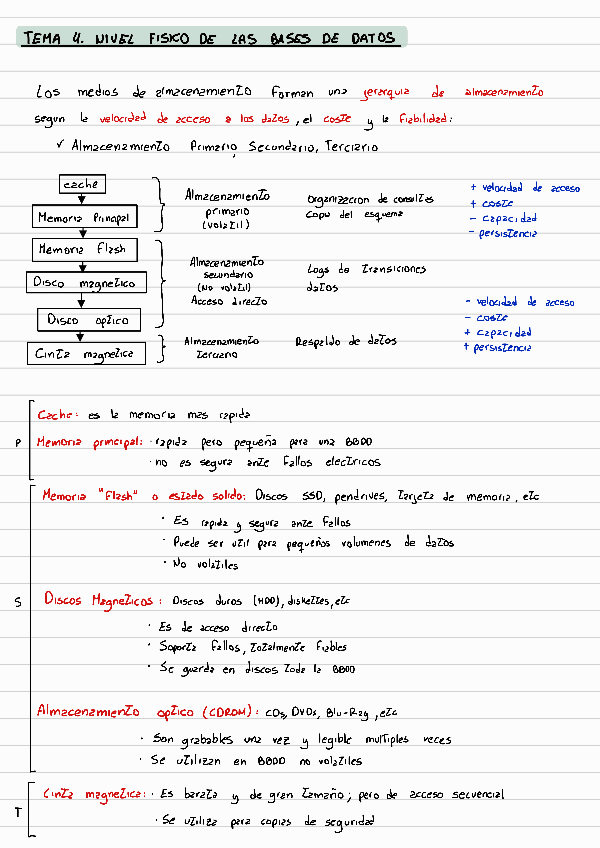 TEMA 4. NIVEL FISICO DE LAS BASES DE DATOS
Los medios de almacenamiento forman una jerarquia de almacenamiento
segun la velocidad de acceso a los datos, el coste y la fiabilidad:
✓ Almacenamiento Primario, Secundario, Terciario
cache
Memoria Principal
Memoria Flash
Disco magnetico
Disco optico
Cinta magnetica
Almacenamiento
primario
(volatil)
Organizacion de consultas
Copia del esquema
Almacenamiento
secundario
(No volatil)
Acceso directo
Logs de transiciones
datos
Almacenamiento
terciario
Respaldo de datos
+ velocidad de acceso
+ coste
- capacidad
- persistencia
- velocidad de acceso
- coste
+ capacidad
+ persistencia
P
Cache: es la memoria mas rapida
Memoria principal: · rapida pero pequeña para una BBDD
· no es segura ante fallos electricos
S
Memoria "Flash" o estado solido: Discos SSD, pendrives, tarjeta de memoria, etc
· Es rapida y segura ante fallos
· Puede ser util para pequeños volumenes de datos
· No volatiles
Discos Magneticos: Discos duros (HDD), diskettes, etc
· Es de acceso directo
· Soporta fallos, totalmente fiables
· Se guarda en discos toda la BBDD
Almacenamiento optico (CDROM): CDs, DVDs, Blu-Ray, etc
· Son grabables una vez y legible multiples veces
· Se utilizan en BBDD no volatiles
T
Cinta magnetica: · Es barata y de gran tamaño; pero de acceso secuencial
· Se utiliza para copias de seguridad